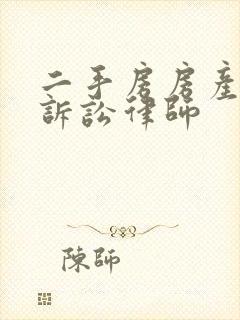 二手房房産
訴訟律師
陳師